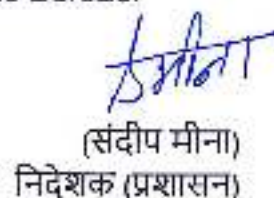 (संदीप मीना)
निदेशक (प्रशासन)